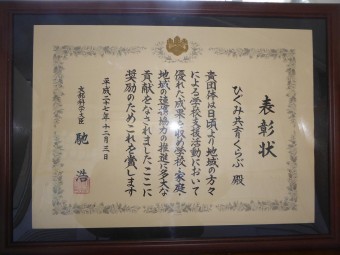 表彰状
ひくみ共育くらぶ 殿
貴団体は日頃より地域の方々
による学校支援活動において
優れた成果を収め学校・家庭・
地域の連携協力の推進に多大な
貢献をなされましたここに
奨励のためこれを賞します
平成二十七年十二月三日
文部科学大臣 馳 浩